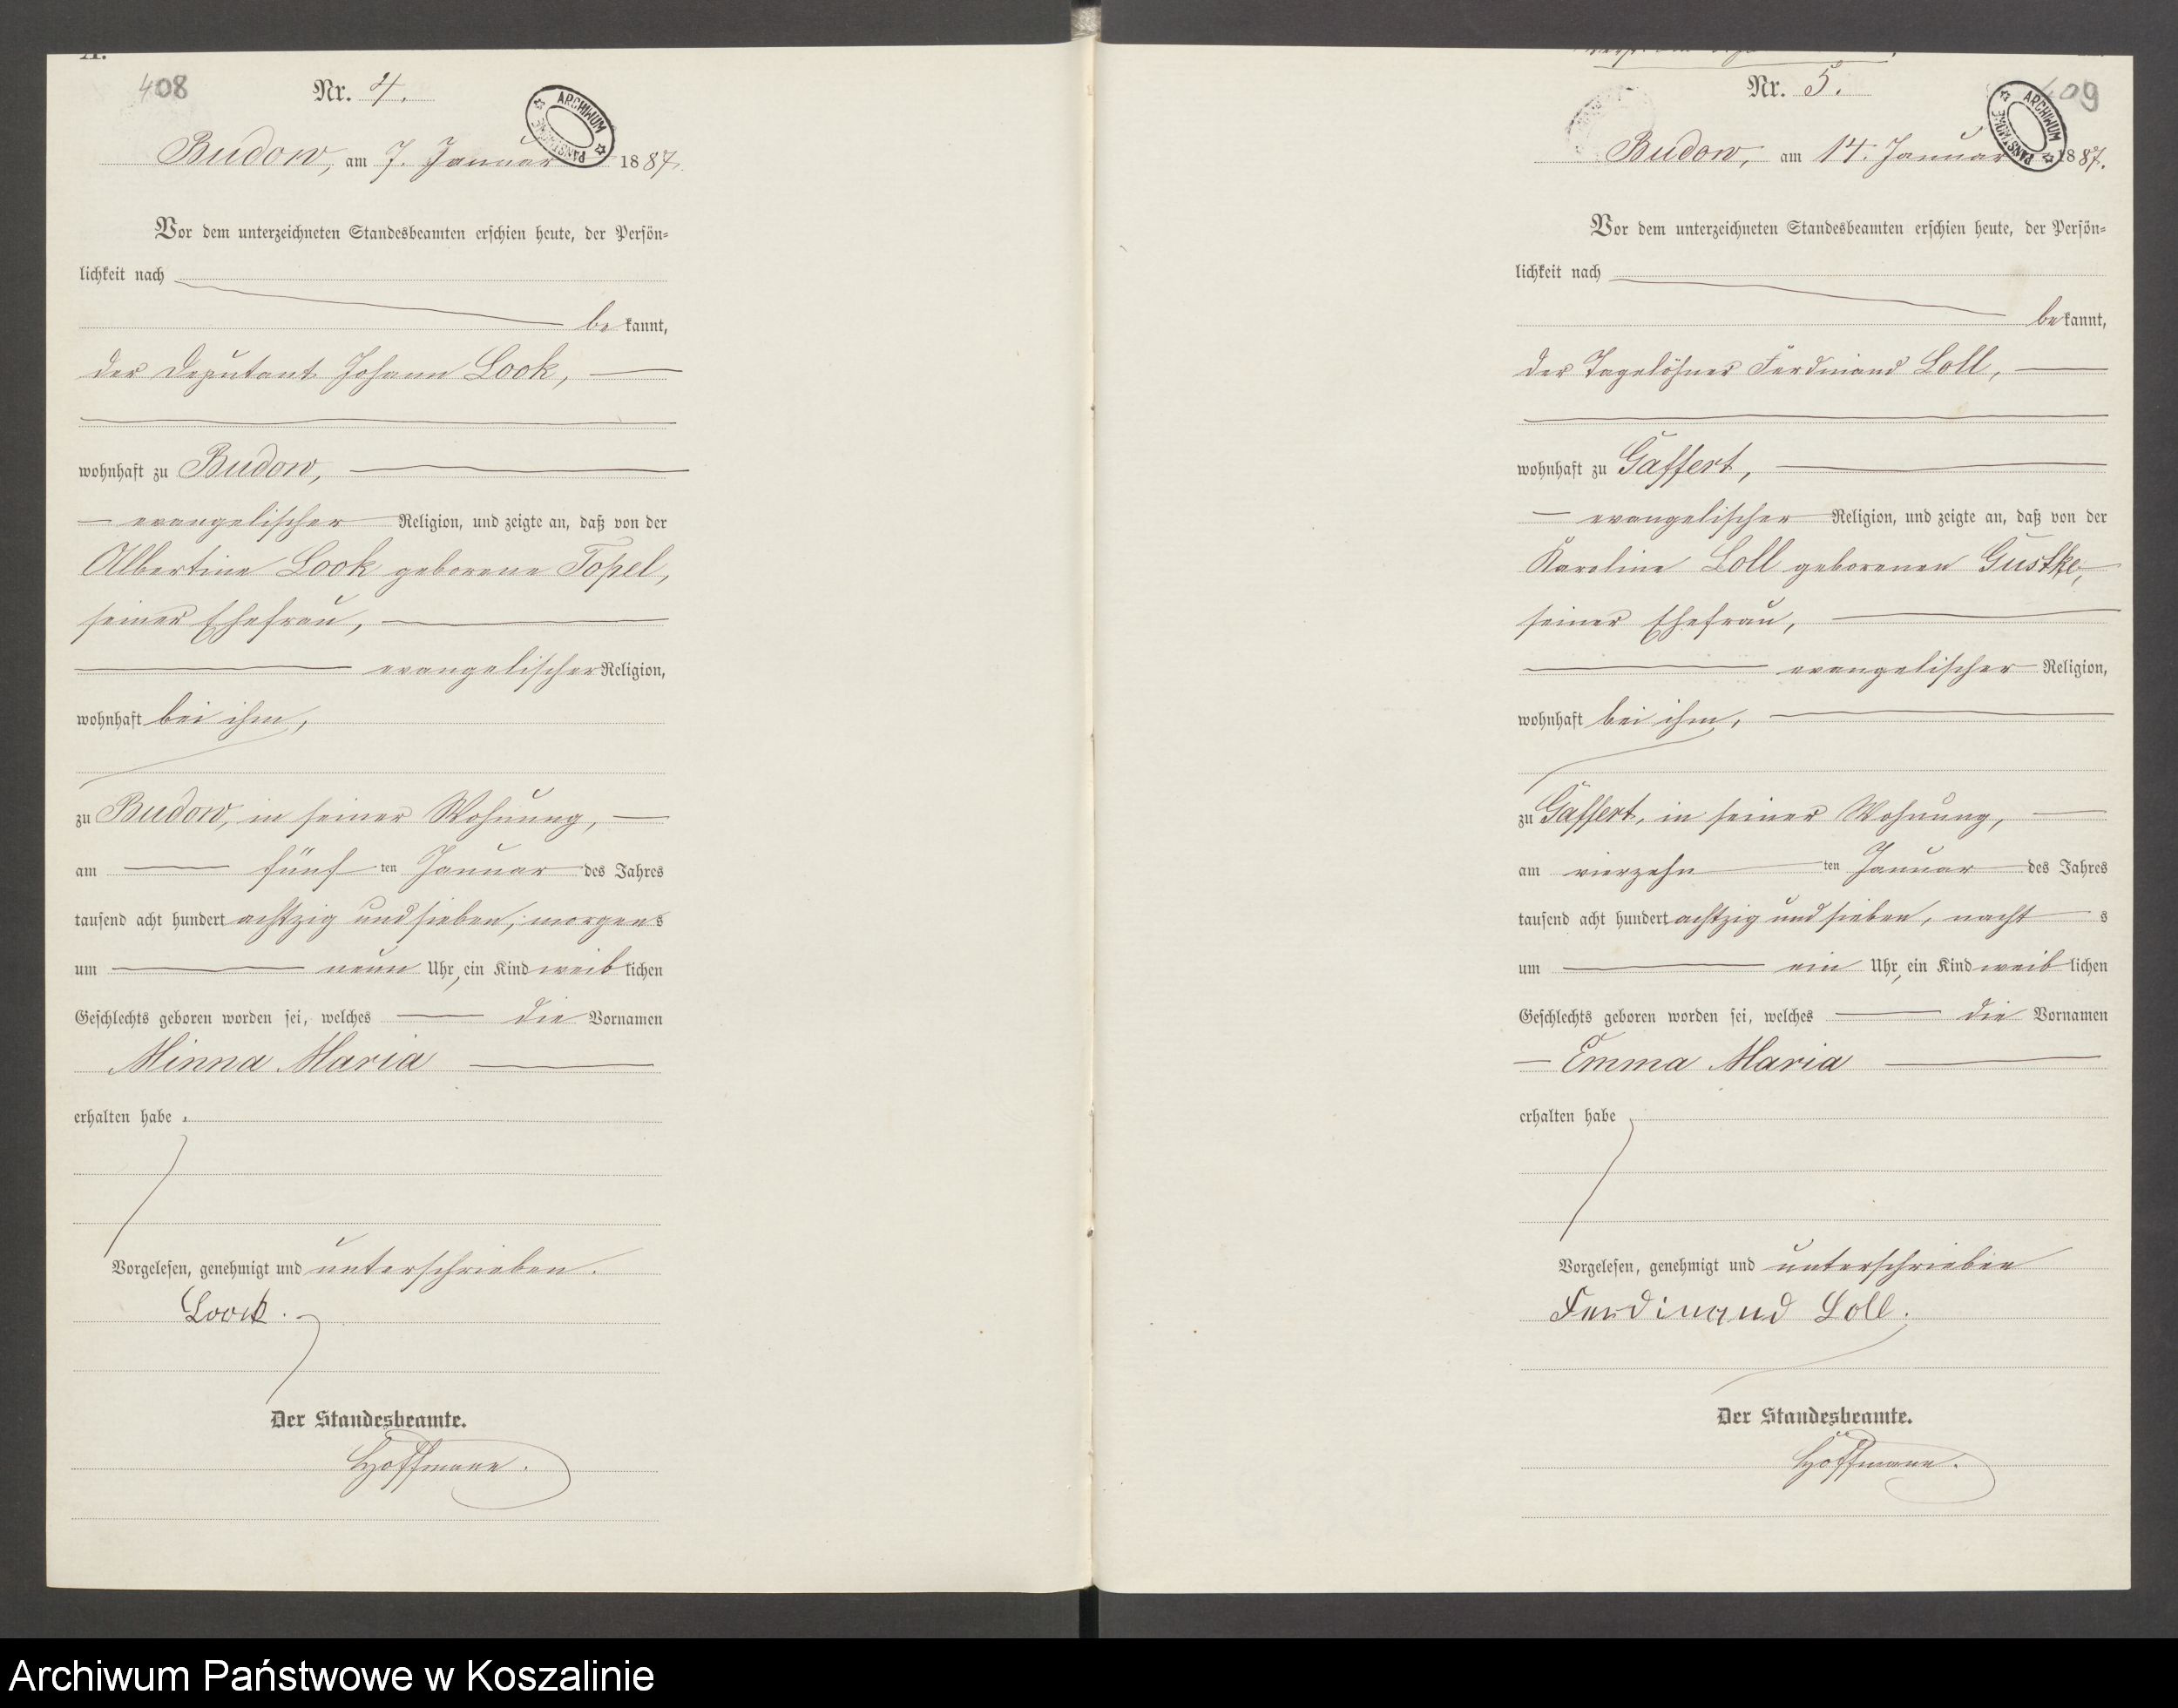 408
Nr. 4.
ARCHIWUM PAŃSTWOWE
Budow, am 7. Januar 1887.
Vor dem unterzeichneten Standesbeamten erschien heute, der Persön-
lichkeit nach
bekannt,
der Deputant Johann Look,
wohnhaft zu Budow,
evangelischer Religion, und zeigte an, daß von der
Albertine Look geborene Topel,
seiner Ehefrau,
evangelischer Religion,
wohnhaft bei ihm,
zu Budow, in seiner Wohnung,
am fünf ten Januar des Jahres
tausend acht hundert achtzig und sieben, morgens
um neun Uhr, ein Kind weiblichen
Geschlechts geboren worden sei, welches die Vornamen
Minna Maria
erhalten habe.
Vorgelesen, genehmigt und unterschrieben.
Loock.
Der Standesbeamte.
Hoffmann.
409
Nr. 5.
ARCHIWUM PAŃSTWOWE
Budow, am 14. Januar 1887.
Vor dem unterzeichneten Standesbeamten erschien heute, der Persön-
lichkeit nach
bekannt,
der Tagelöhner Ferdinand Loll,
wohnhaft zu Gaffert,
evangelischer Religion, und zeigte an, daß von der
Karoline Loll geborenen Gustke,
seiner Ehefrau,
evangelischer Religion,
wohnhaft bei ihm,
zu Gaffert, in seiner Wohnung,
am vierzehn ten Januar des Jahres
tausend acht hundert achtzig und sieben, nachts
um ein Uhr, ein Kind weiblichen
Geschlechts geboren worden sei, welches die Vornamen
Emma Maria
erhalten habe
Vorgelesen, genehmigt und unterschrieben
Ferdinand Loll.
Der Standesbeamte.
Hoffmann.
Archiwum Państwowe w Koszalinie